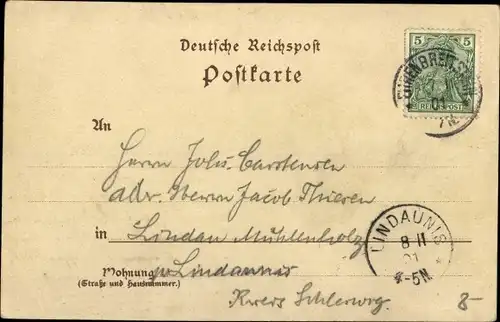 Deutsche Reichspost
Postkarte
5 5
REICHSPOST
EHRENBREITSTEIN
01
7-8N.
An
Herrn Johs. Carstensen
adr. Herrn Jacob Thiesen
in Lindau Mühlenholz
Wohnung b/ Lindaunis
(Straße und Hausnummer.)
Kreis Schleswig.
LINDAUNIS
8 11
01
4-5N.
8-